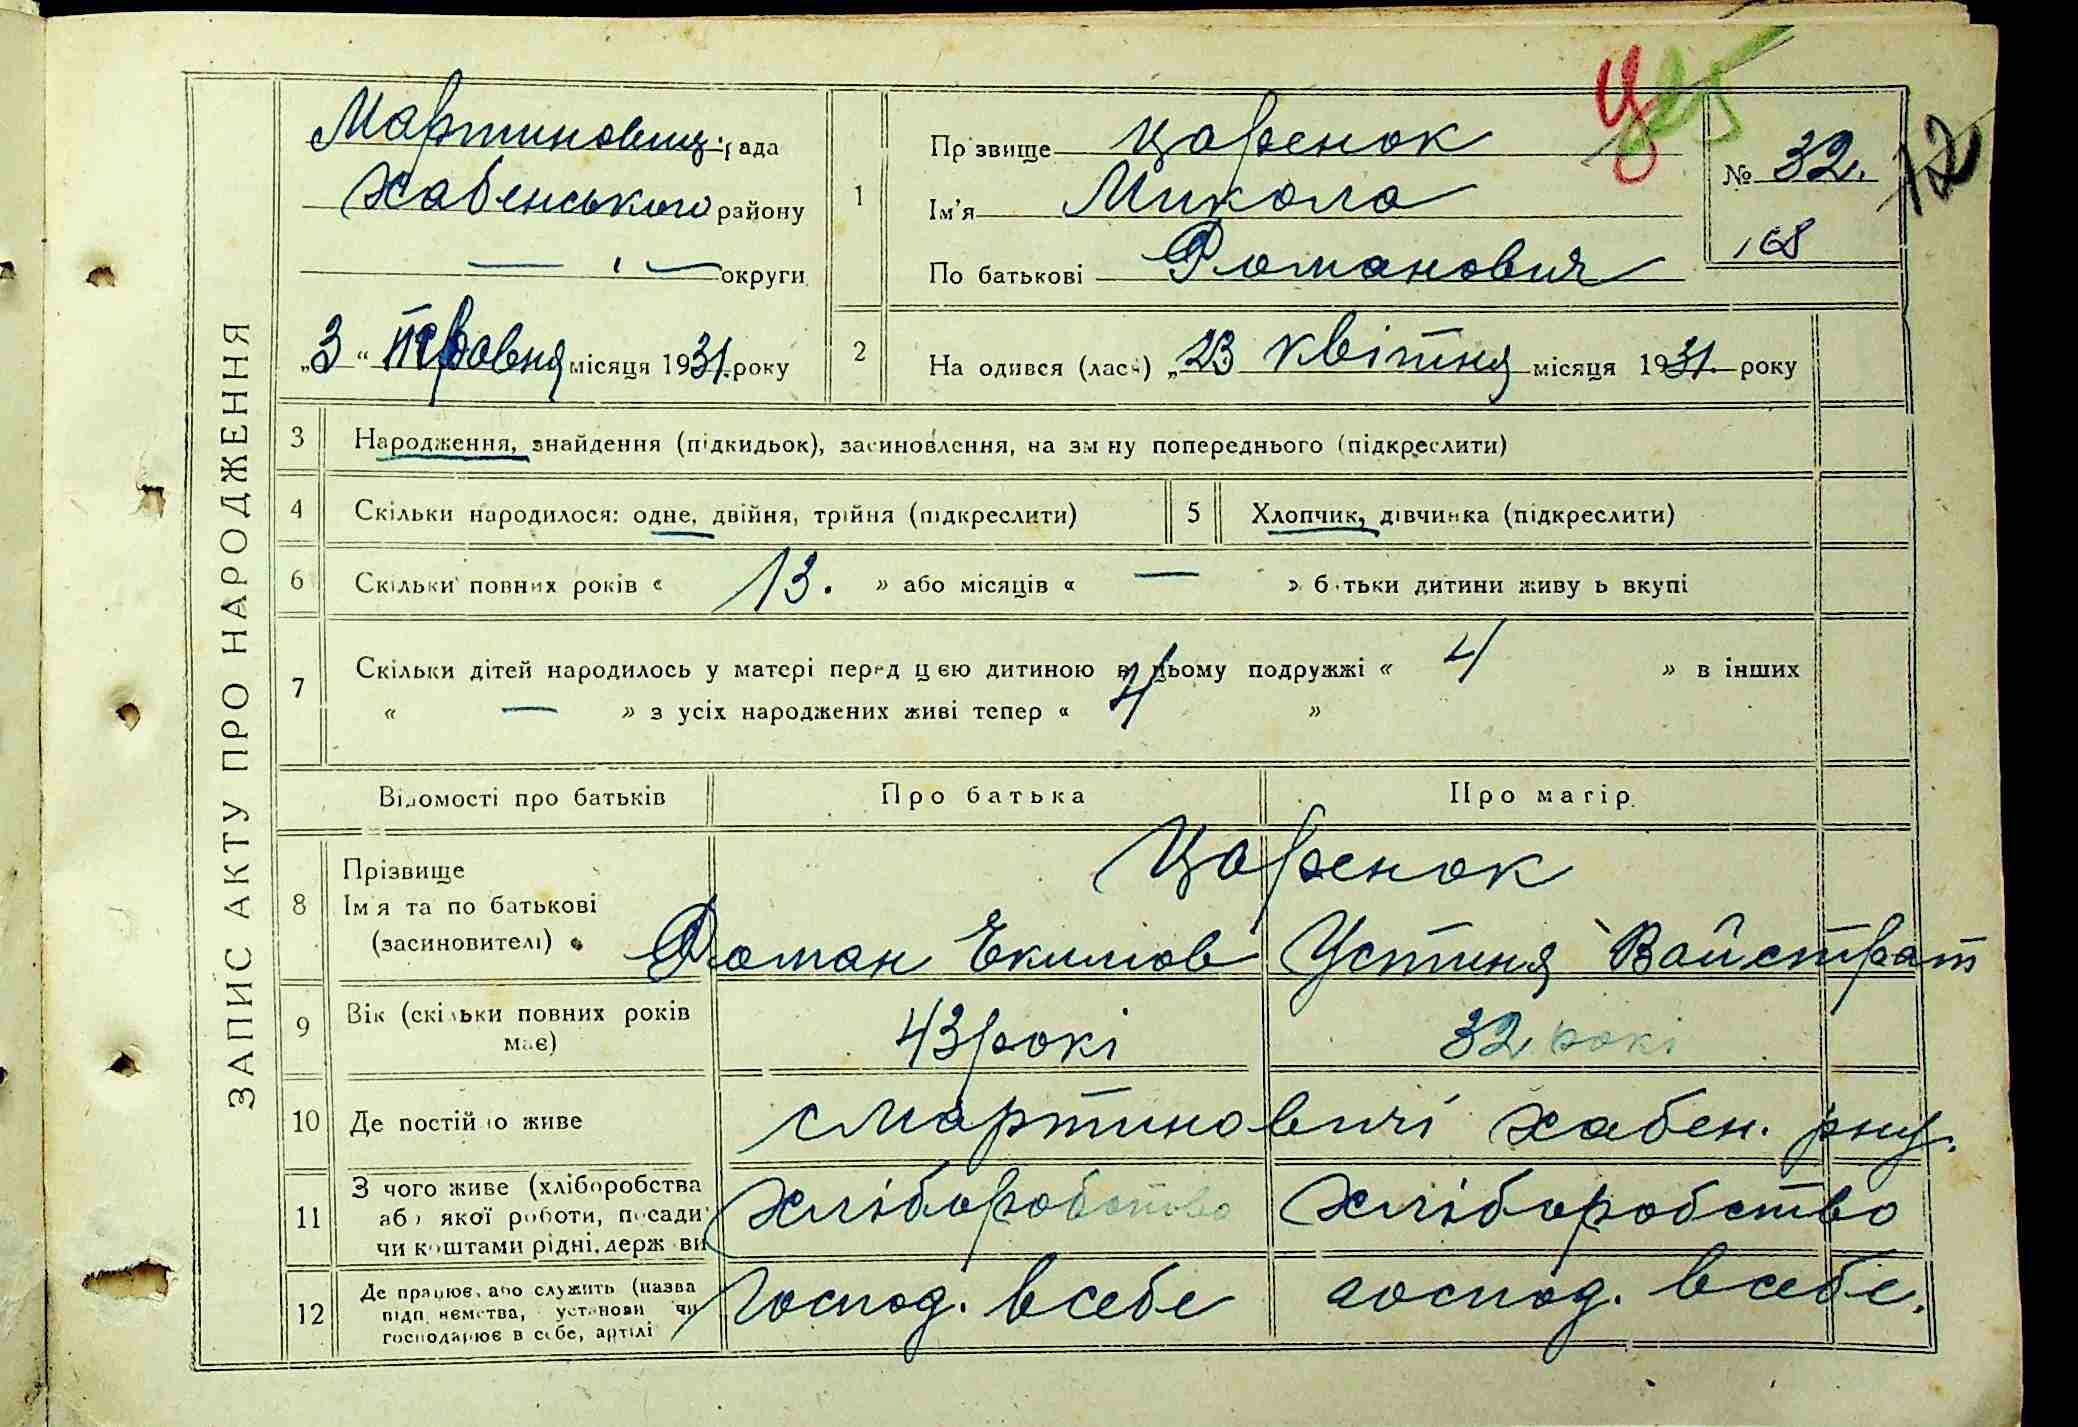 ЗАПИС АКТУ ПРО НАРОДЖЕННЯ
Мартиновиц. рада
Хабенського району
— " — округи
„3“ червня місяця 1931. року
1
Прізвище Царенок
Ім'я Микола
По батькові Романович
№ 32.
168
12
2
Народився (лась) „23 квітня місяця 1931. року
3 Народження, знайдення (підкидьок), засиновлення, на зміну попереднього (підкреслити)
4 Скільки народилося: одне, двійня, трійня (підкреслити)
5 Хлопчик, дівчинка (підкреслити)
6 Скільки повних років « 13. » або місяців « — » батьки дитини живуть вкупі
7 Скільки дітей народилось у матері перед цією дитиною в цьому подружжі « 4 » в інших
« — » з усіх народжених живі тепер « 4 »
Відомості про батьків Про батька Про матір
8 Прізвище
Ім'я та по батькові
(засиновителі)
Царенок
Роман Екимов Устиня Вайстрат
9 Вік (скільки повних років
має)
43 рокі 32 рокі
10 Де постійно живе с Мартиновичі Хабен. рну.
11 З чого живе (хліборобства
або якої роботи, посади
чи коштами рідні, держави
Хліборобство Хліборобство
12 Де працює, або служить (назва
підприємства, установи чи
господарює в себе, артілі
Господ. в себе господ. в себе.